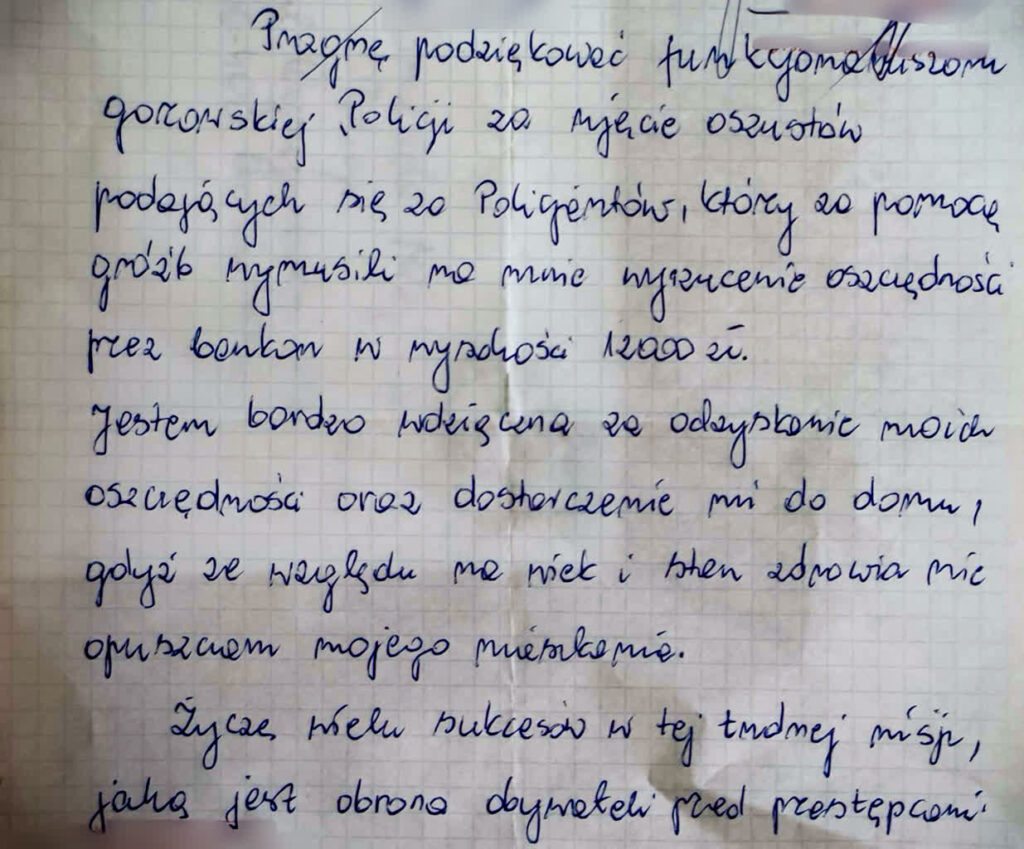 Pragnę podziękować funkcjonariuszom
gorzowskiej Policji za ujęcie oszustów
podających się za Policjantów, którzy za pomocą
gróźb wymusili na mnie wyrzucenie oszczędności
przez balkon w wysokości 12000 zł.
Jestem bardzo wdzięczna za odzyskanie moich
oszczędności oraz dostarczenie mi do domu,
gdyż ze względu na wiek i stan zdrowia nie
opuszczam mojego mieszkania.
Życzę wielu sukcesów w tej trudnej misji,
jaką jest obrona obywateli przed przestępcami.